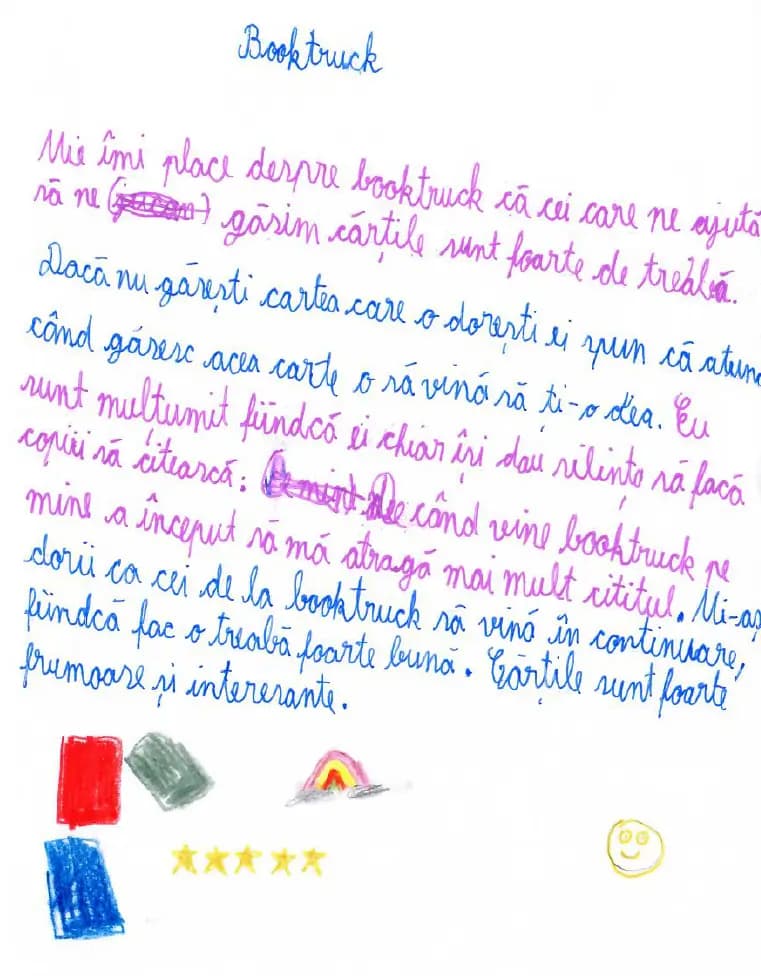 Booktruck
Mie îmi place despre booktruck că cei care ne ajută
să ne găsim cărțile sunt foarte de treabă.
Dacă nu găsești cartea care o dorești ei spun că atunc
când găsesc acea carte o să vină să ți-o dea. Eu
sunt mulțumit fiindcă ei chiar își dau silința să facă
copiii să citească: când vine booktruck pe
mine a început să mă atragă mai mult cititul. Mi-aș
dorii ca cei de la booktruck să vină în continuare,
fiindcă fac o treabă foarte bună. Cărțile sunt foarte
frumoase și interesante.